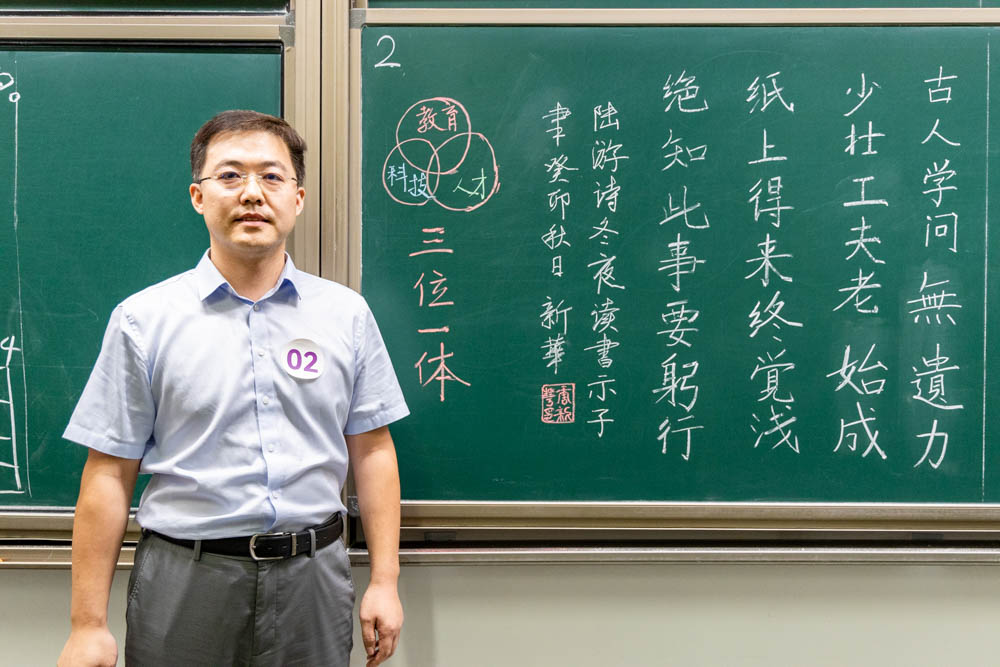 2
古人学问無遺力
少壮工夫老始成
纸上得来终觉浅
绝知此事要躬行
陆游诗冬夜读书示子
聿癸卯秋日 新華
教育
科技
人才
三位一体
02
4